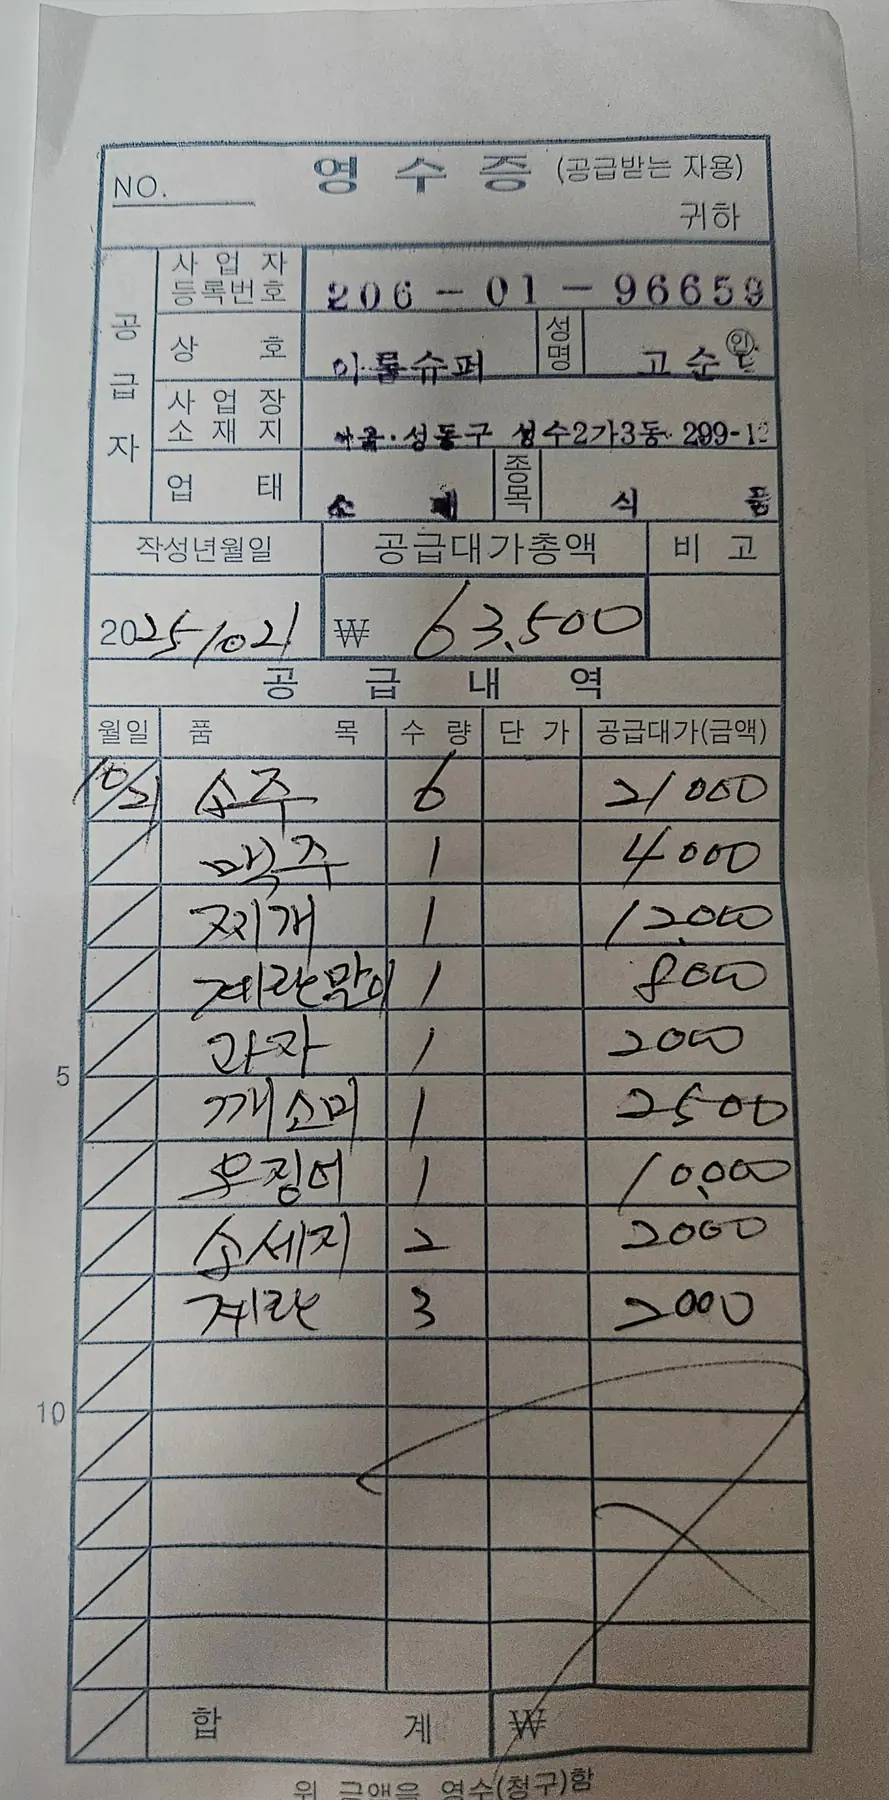 NO. 영 수 증 (공급받는 자용)
귀하
공급자
사 업 자 등록번호 206 - 01 - 96659
상 호 이룸슈퍼 성명 고순 인
사 업 장 소 재 지 성동구 성수2가3동 299-12
업 태 소 매 종목 식 품
작성년월일 공급대가총액 비 고
2025/10 21 ₩ 63,500
공 급 내 역
월일 품 목 수 량 단 가 공급대가(금액)
10/21 소주 6 21000
맥주 1 4000
찌개 1 12,000
계란말이 1 8000
5 과자 1 2000
깨소미 1 2500
오징어 1 10,000
소세지 2 2000
계란 3 2000
10
합 계 ₩
위 금액을 영수(청구)함